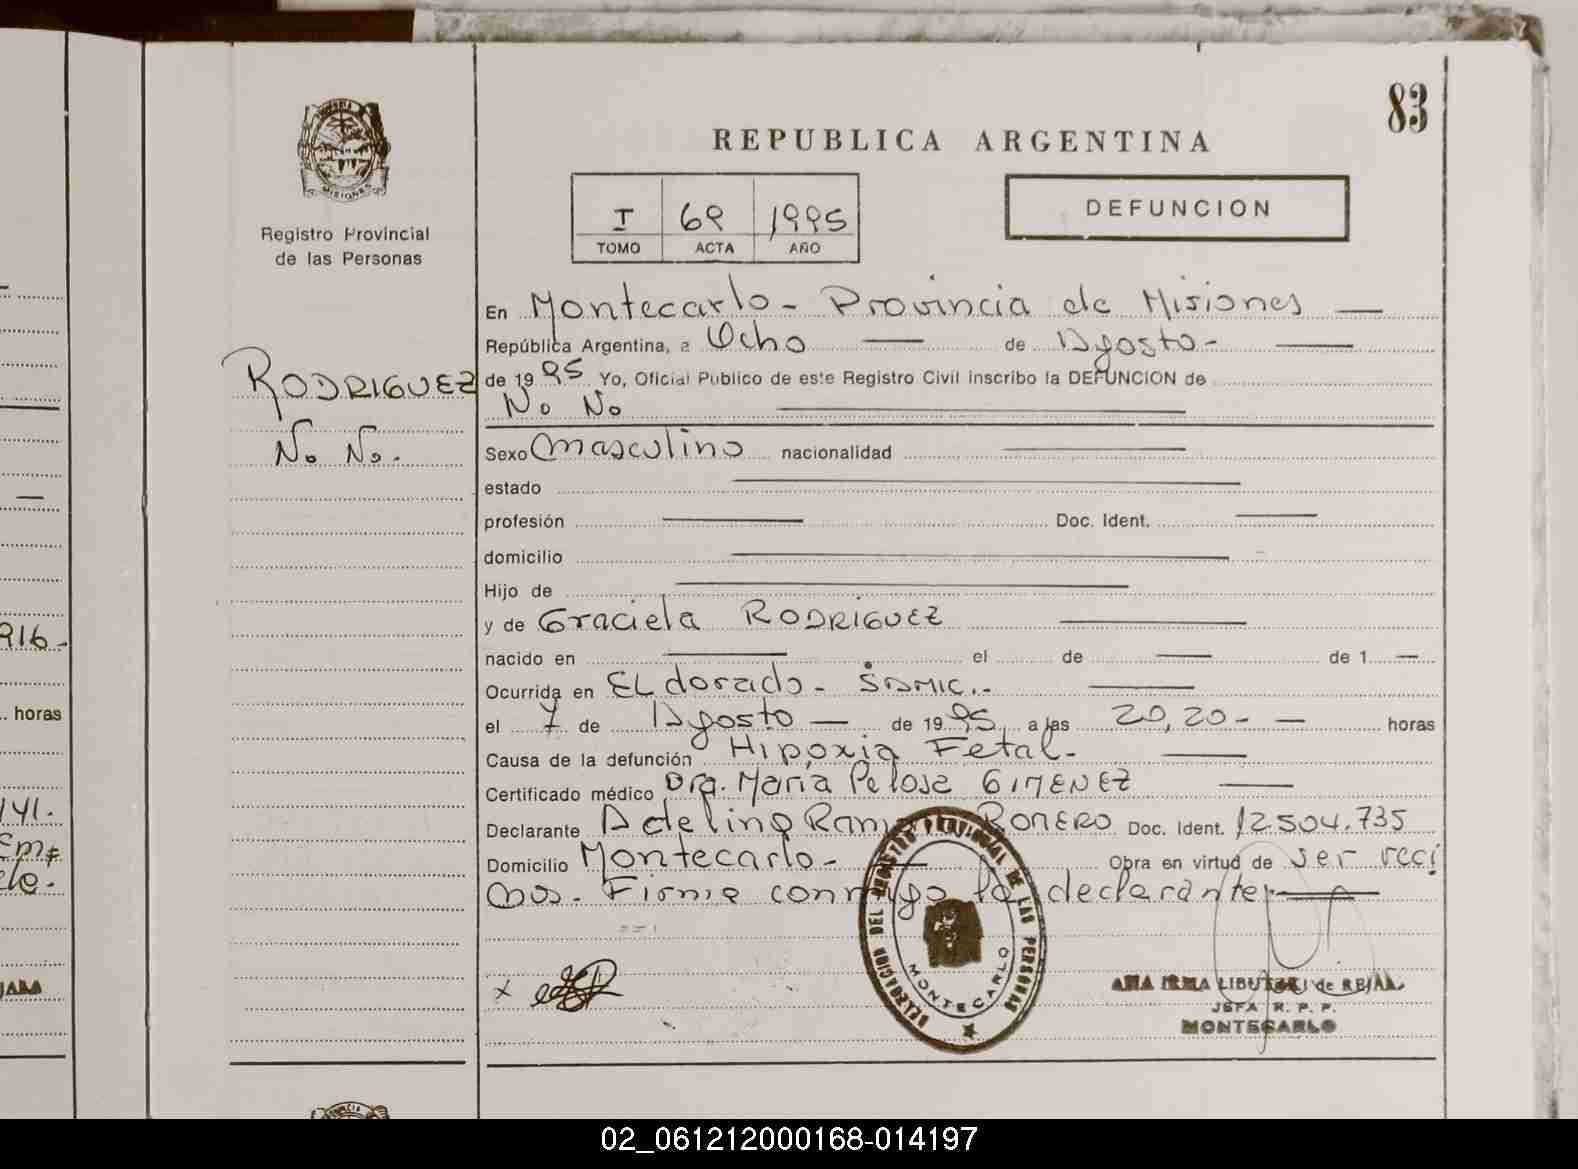 83
REPUBLICA ARGENTINA
MISIONES
Registro Provincial
de las Personas
I 69 1995
TOMO ACTA AÑO
DEFUNCION
RODRIGUEZ
No No.
En Montecarlo - Provincia de Misiones
República Argentina, a Ocho de Agosto -
de 1995 Yo, Oficial Publico de este Registro Civil inscribo la DEFUNCION de
No No
Sexo Masculino nacionalidad
estado
profesión Doc. Ident.
domicilio
Hijo de
y de Graciela RODRIGUEZ
nacido en el de de 1
Ocurrida en ELdorado - SAMIC.-
el 7 de Agosto de 1995 a las 20,20 - horas
Causa de la defunción Hipoxia Fetal -
Certificado médico Dra. Maria Pelosa GIMENEZ
Declarante Adelino Ramon ROMERO Doc. Ident. 12.504.735
Domicilio Montecarlo - Obra en virtud de ser veci
nos. Firma conmigo la declarante
DELEGACION DEL REGISTRO PROVINCIAL DE LAS PERSONAS
MONTECARLO
x
ANA IRMA de
JEFA R. P. P.
MONTECARLO
916 -
horas
141.
02_061212000168-014197